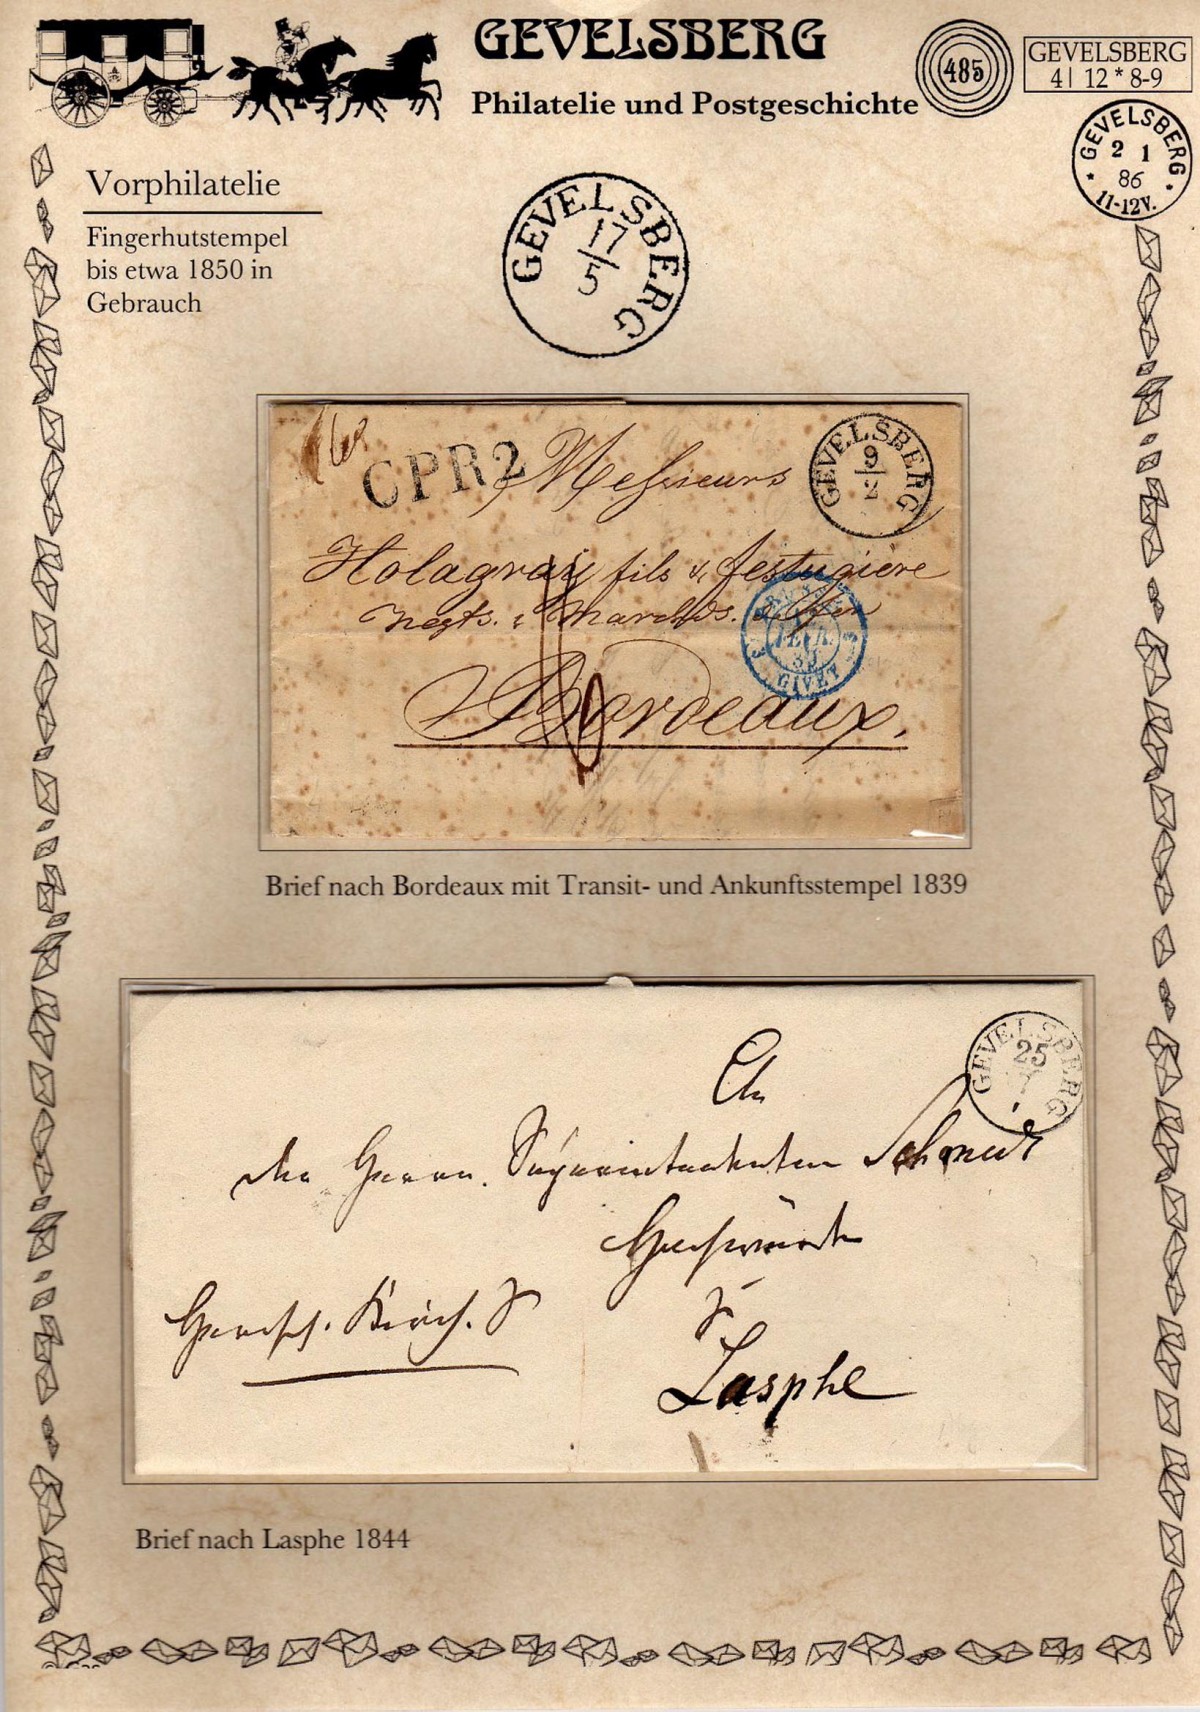 GEVELSBERG
Philatelie und Postgeschichte
485
GEVELSBERG
4| 12 * 8-9
GEVELSBERG
2 1
86
11-12V.
Vorphilatelie
Fingerhutstempel
bis etwa 1850 in
Gebrauch
GEVELSBERG
17
5
CPR2
Messieurs
GEVELSBERG
9
2
fils & festugière
negts.
GIVET
Bordeaux.
Brief nach Bordeaux mit Transit- und Ankunftsstempel 1839
GEVELSBERG
25
7
An
den Herrn Superintendenten Schmidt
Lasphe
Brief nach Lasphe 1844